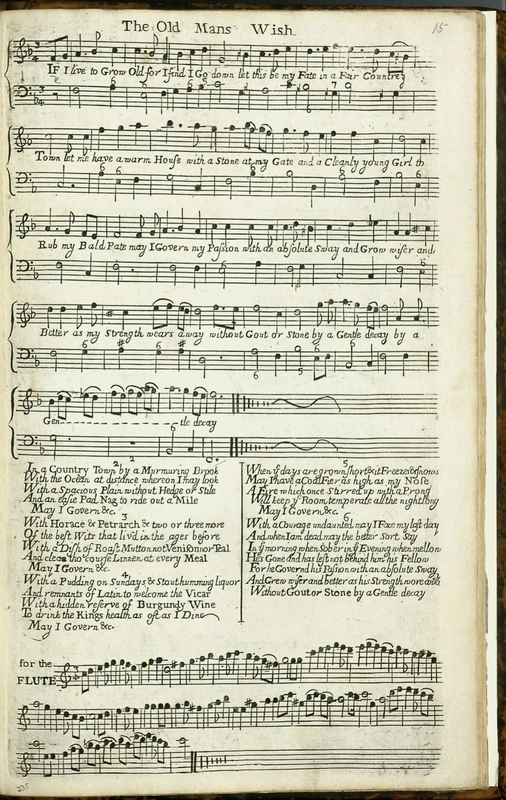 The Old Mans Wish.
15
IF I live to Grow Old for I find I Go down let this be my Fate in a Fair Countrey
Town let me have a warm House with a Stone at my Gate and a Cleanly young Girl to
Rub my Bald Pate may I Govern my Passion with an absolute Sway and Grow wiser and
Better as my Strength wears away without Gout or Stone by a Gentle decay by a
Gen------tle decay
2
In a Country Town by a Murmuring Brook
With the Ocean at distance whereon I may look
With a Spacious Plain without Hedge or Stile
And an easie Pad Nag to ride out a Mile
May I Govern &c.
3
With Horace & Petrarch & two or three more
Of the best Wits that liv'd in the ages before
With a Dish of Roast Mutton not Venison nor Teal
And clean tho' course Linnen at every Meal
May I Govern &c.
4
With a Pudding on Sundays & Stout humming liquor
And remnants of Latin to welcome the Vicar
With a hidden reserve of Burgundy Wine
To drink the Kings health as oft as I Dine
May I Govern &c.
5
When yͤ days are grown short & it Freezes & snows
May I have a Coal Fier as high as my Nose
A Fire which once Stirred up with a Prong
Will keep yͤ Room temperate all the night long
May I Govern &c.
6
With a Courage undaunted may I Face my last day
And when I am dead may the better Sort Say
In yͤ morning when Sober in yͤ Evening when mellow
He's Gone and has left not behind him his Fellow
For he Governd his Passion with an absolute Sway
And Grew wiser and better as his Strength wore away
Without Gout or Stone by a Gentle decay
for the
FLUTE